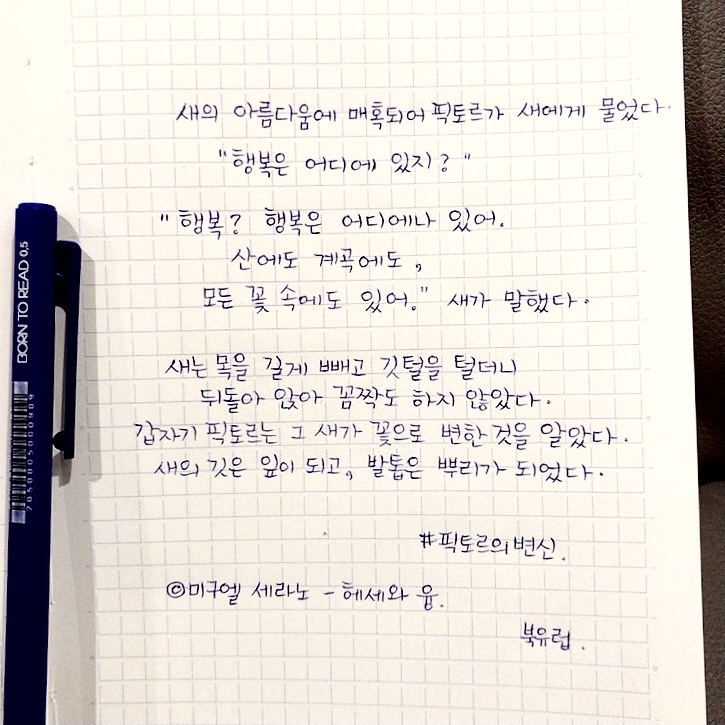 새의 아름다움에 매혹되어 픽토르가 새에게 물었다.
"행복은 어디에 있지?"
"행복? 행복은 어디에나 있어.
산에도 계곡에도,
모든 꽃 속에도 있어." 새가 말했다.
새는 목을 길게 빼고 깃털을 털더니
뒤돌아 앉아 꼼짝도 하지 않았다.
갑자기 픽토르는 그 새가 꽃으로 변한 것을 알았다.
새의 깃은 잎이 되고, 발톱은 뿌리가 되었다.
#픽토르의변신.
©미구엘 세라노 - 헤세와 융.
북유럽.
BORN TO READ 0.5
2050005000909